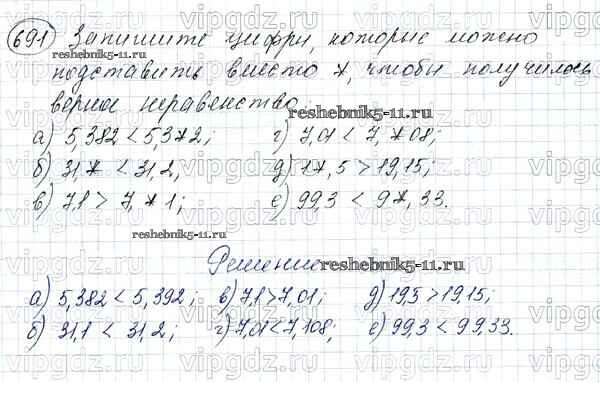 691 Запишите цифры, которые можно
подставить вместо *, чтобы получилось
верное неравенство.
а) 5,382 < 5,3*2; г) 7,01 < 7,*08;
б) 31,* < 31,2; д) 1*,5 > 19,15;
в) 7,1 > 7,*1; е) 99,3 < 9*,33.
Решение
а) 5,382 < 5,392; в) 7,1 > 7,01; д) 19,5 > 19,15;
б) 31,1 < 31,2; г) 7,01 < 7,108; е) 99,3 < 99,33.
reshebnik5-11.ru
reshebnik5-11.ru
reshebnik5-11.ru
reshebnik5-11.ru
reshebnik5-11.ru
vipgdz.ru